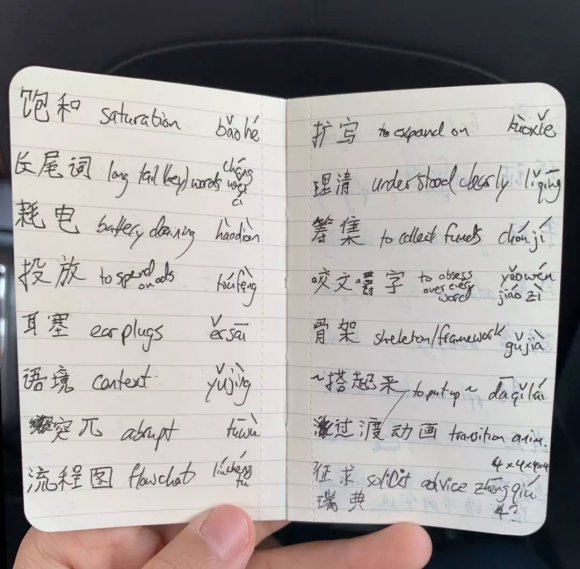 饱和 saturation bǎohé
长尾词 long tail (key) words cháng wěi cí
耗电 battery draining hàodiàn
投放 to spend on ads tóufàng
耳塞 earplugs ěrsāi
语境 context yǔjìng
突兀 abrupt tūwù
流程图 flowchat liúchéng tú
扩写 to expand on kuòxiě
理清 understood clearly lǐqīng
筹集 to collect funds chóují
咬文嚼字 to obsess over every word yǎowén jiáozì
骨架 skeleton/framework gǔjià
~搭起来 to put up ~ dāqǐlái
过渡动画 transition anim.
征求 solicit advice zhēngqiú
瑞典